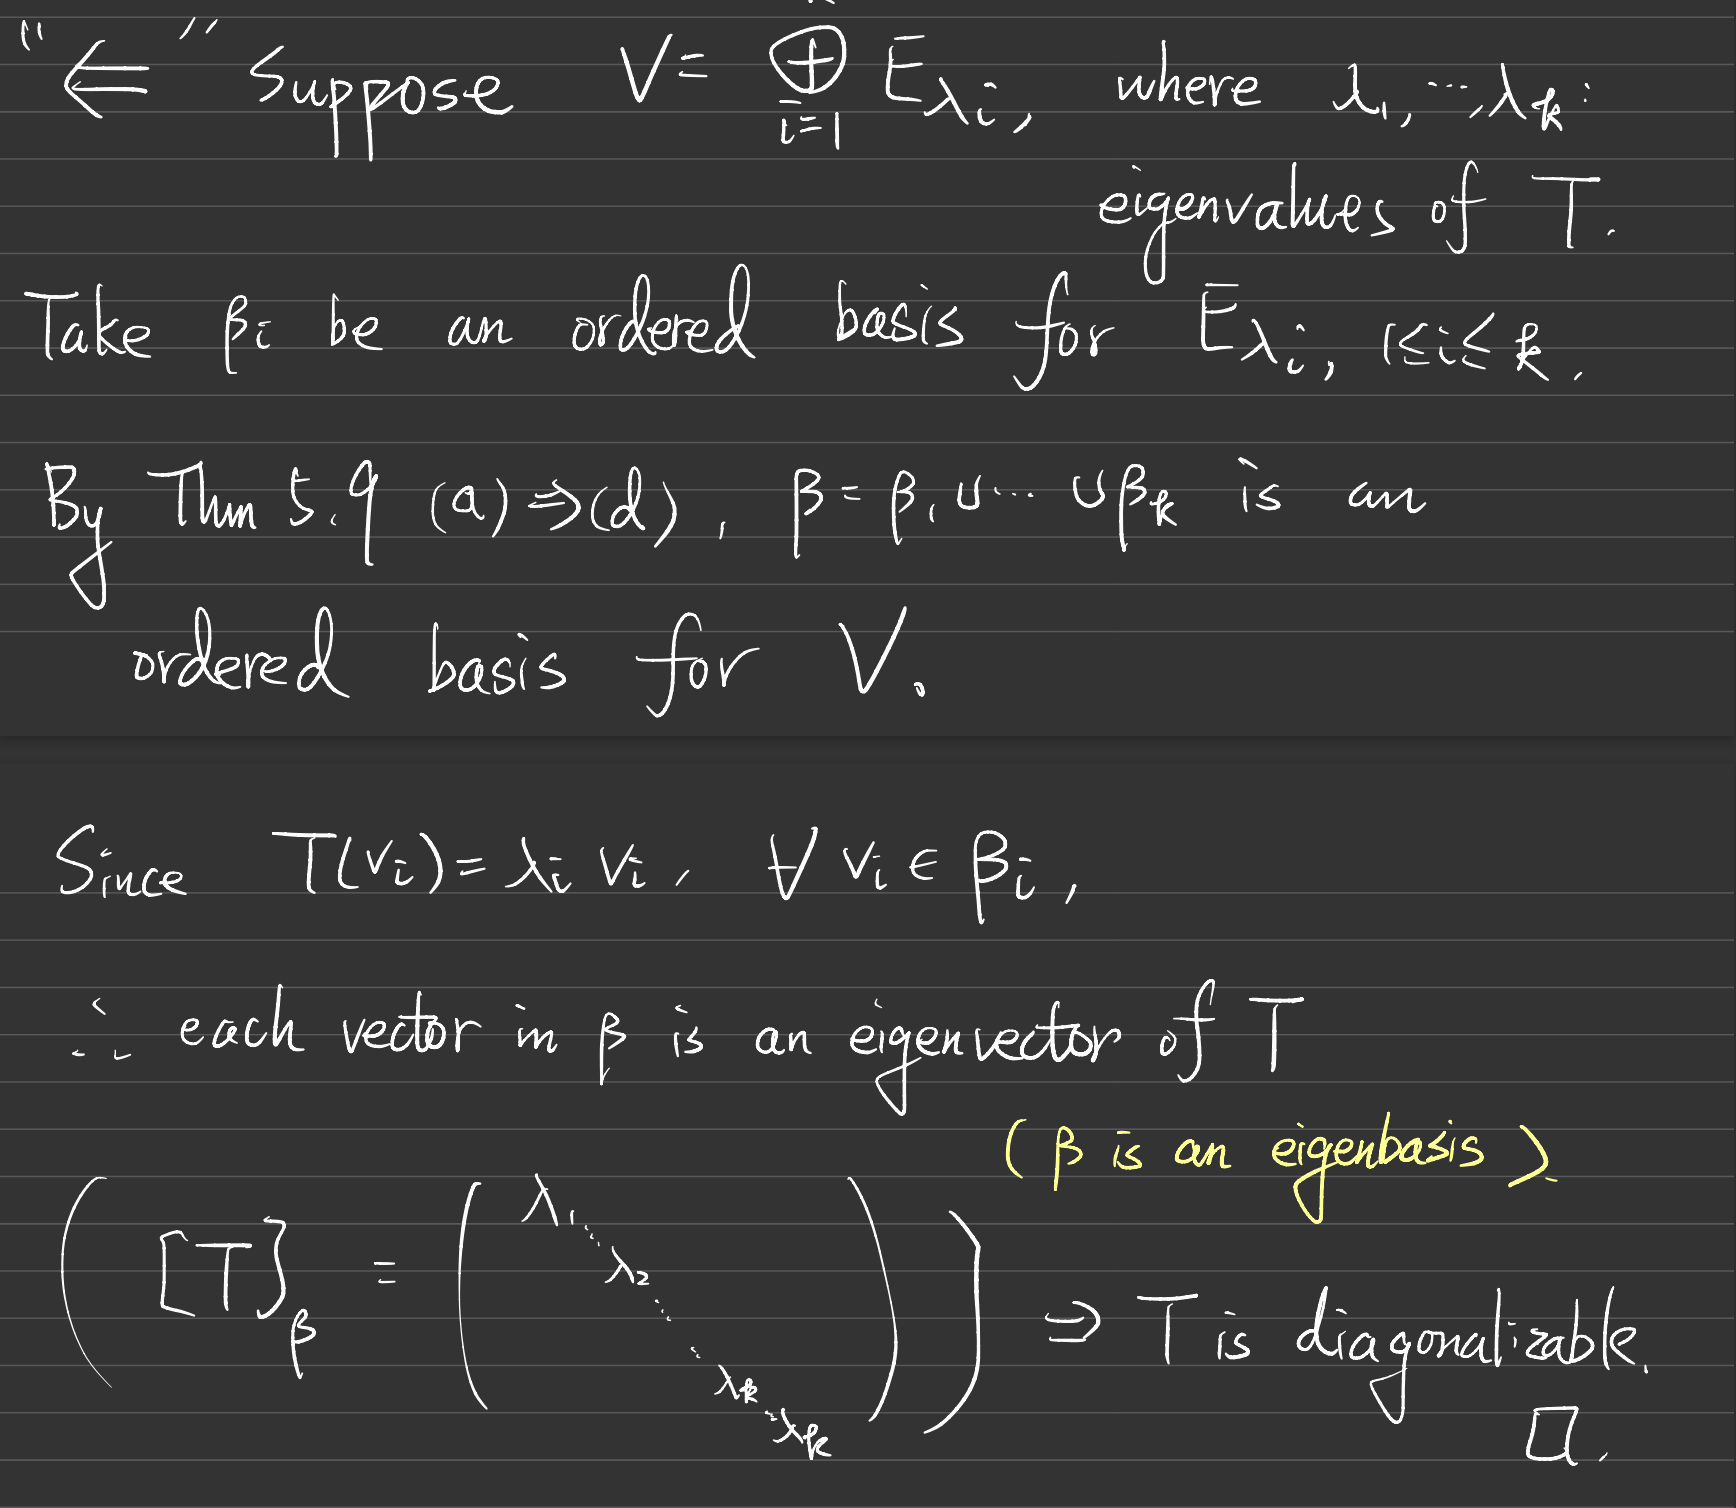 "⇐" Suppose V = ⊕_{i=1} E_{λi}, where λ1, ..., λk:
eigenvalues of T.
Take βi be an ordered basis for E_{λi}, 1≤i≤k.
By Thm 5.9 (a)⇒(d), β = β1 ∪ ... ∪ βk is an
ordered basis for V.
Since T(vi) = λi vi, ∀ vi ∈ βi,
∴ each vector in β is an eigenvector of T
(β is an eigenbasis).
( [T]β = ( λ1 ... λ2 ... ... λk ... λk ) ) ⇒ T is diagonalizable.
□.